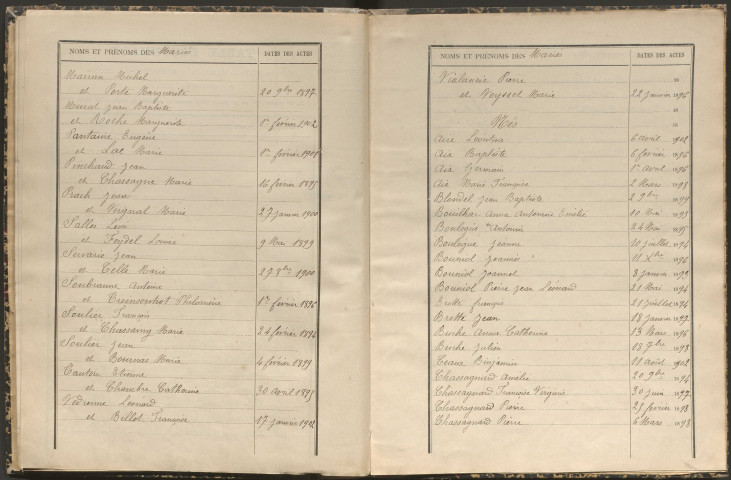 NOMS ET PRÉNOMS DES Mariés DATES DES ACTES
Marion Michel
et Porte Marguerite 20 9bre 1897
Murat Jean Baptiste
et Roche Marguerite 1er février 1902
Pantaine Eugène
et Lac Marie 1er février 1908
Pinchard Jean
et Chassagne Marie 16 février 1895
Prach Jean
et Vergnal Marie 27 janvier 1900
Salles Léon
et Feydel Louise 9 Mai 1899
Servarie Jean
et Celle Marie 27 8bre 1900
Soubranne Antoine
et Philomène 1er février 1896
Soulier François
et Chassang Marie 24 février 1894
Soulier Jean
et Bournas Marie 4 février 1899
Tautou Etienne
et Chambre Catherine 30 avril 1895
Vedrenne Léonard
et Billot Françoise 17 janvier 1901
NOMS ET PRÉNOMS DES Mariés DATES DES ACTES
Vialaneix Pierre
et Veyssel Marie 22 janvier 1896
Nés
Aix Léontine 6 avril 1902
Aix Baptiste 6 février 1896
Aix Germain 1er avril 1896
Aix Marie Françoise 2 Mars 1898
Blondel Jean Baptiste 2 9bre 1899
Bouilhac Anna Antonine Emilie 10 Mai 1893
Boulogne Antonin 24 Mai 1895
Boulogne Jeanne 10 juillet 1894
Bouniol Jeanne 11 Xbre 1896
Bouniol Joannel 3 janvier 1899
Bouniol Pierre Jean Léonard 21 Mai 1894
Brette François 21 juillet 1894
Brette Jean 18 janvier 1899
Buche Anna Catherine 13 Mars 1896
Buche Julien 18 7bre 1898
Ceaux Benjamin 11 août 1902
Chassagnard Amélie 20 9bre 1894
Chassagnard Françoise Virginie 30 juin 1897
Chassagnard Pierre 25 février 1898
Chassagnard Pierre 6 Mars 1898